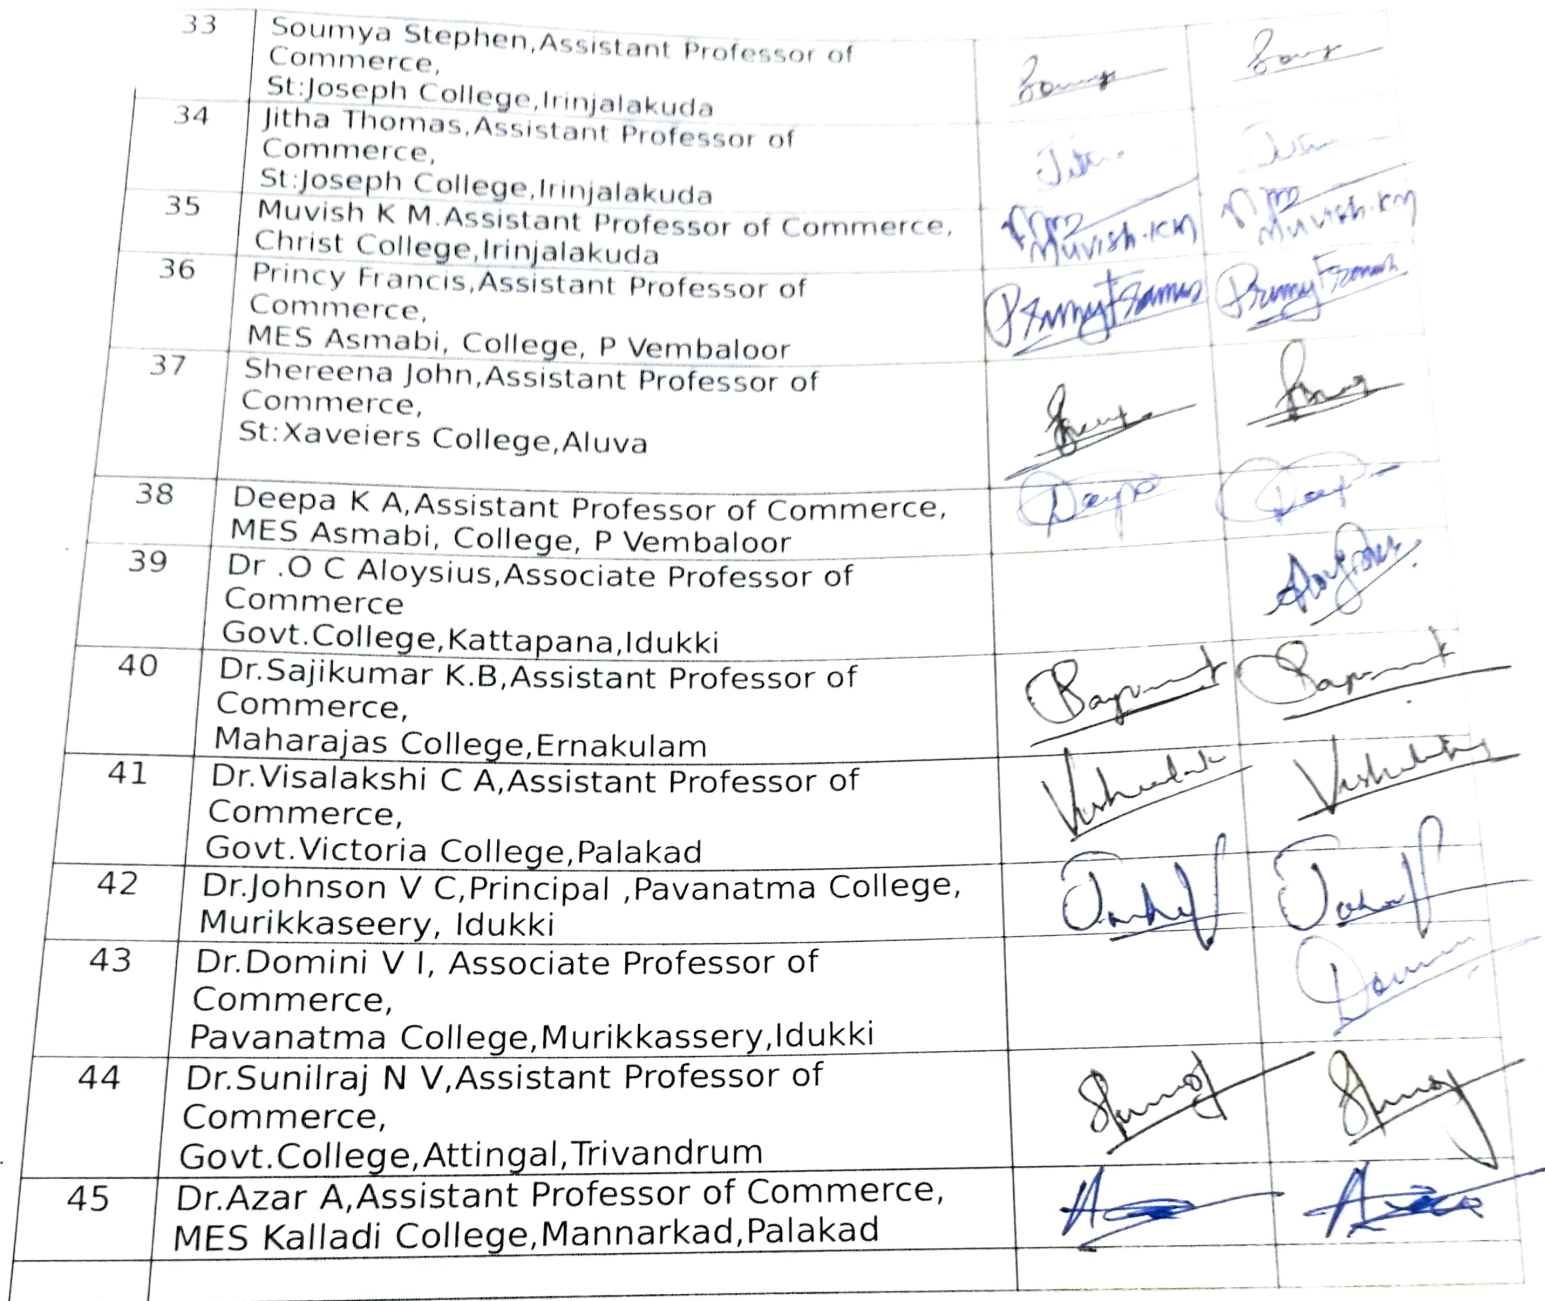 33
Soumya Stephen,Assistant Professor of
Commerce,
St:Joseph College,Irinjalakuda
34
Jitha Thomas,Assistant Professor of
Commerce,
St:Joseph College,Irinjalakuda
35
Muvish K M.Assistant Professor of Commerce,
Christ College,Irinjalakuda
Muvish.KM
Muvish.KM
36
Princy Francis,Assistant Professor of
Commerce,
MES Asmabi, College, P Vembaloor
37
Shereena John,Assistant Professor of
Commerce,
St:Xaveiers College,Aluva
38
Deepa K A,Assistant Professor of Commerce,
MES Asmabi, College, P Vembaloor
Deepa
39
Dr .O C Aloysius,Associate Professor of
Commerce
Govt.College,Kattapana,Idukki
40
Dr.Sajikumar K.B,Assistant Professor of
Commerce,
Maharajas College,Ernakulam
41
Dr.Visalakshi C A,Assistant Professor of
Commerce,
Govt.Victoria College,Palakad
42
Dr.Johnson V C,Principal ,Pavanatma College,
Murikkaseery, Idukki
43
Dr.Domini V I, Associate Professor of
Commerce,
Pavanatma College,Murikkassery,Idukki
44
Dr.Sunilraj N V,Assistant Professor of
Commerce,
Govt.College,Attingal,Trivandrum
45
Dr.Azar A,Assistant Professor of Commerce,
MES Kalladi College,Mannarkad,Palakad